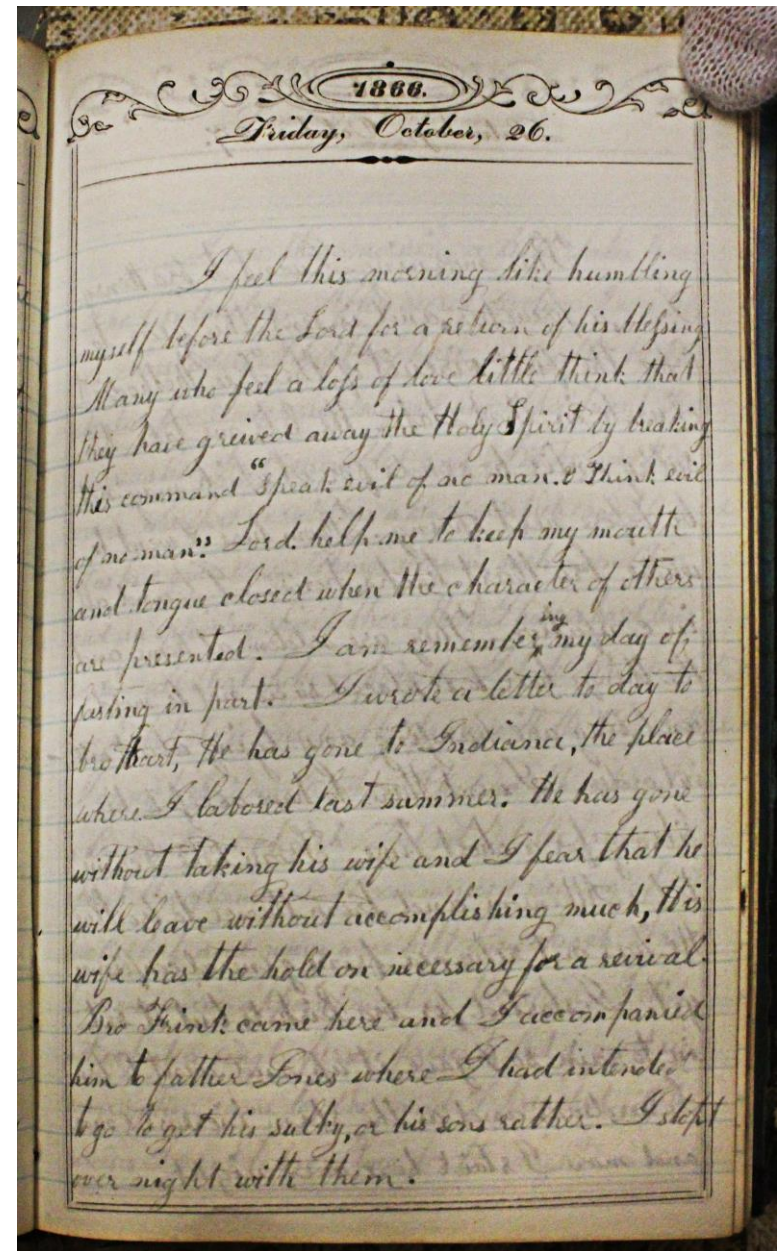 1866.
Friday, October, 26.
I feel this morning like humbling
myself before the Lord for a return of his blessing
Many who feel a loss of love little think that
they have greived away the Holy Spirit by breaking
this command "Speak evil of no man. & Think evil
of no man". Lord. help me to keep my mouth
and tongue closed when the character of others
are presented. I am remembering my day of
fasting in part. I wrote a letter to day to
bro Hart, He has gone to Indiana, the place
where I labored last summer. He has gone
without taking his wife and I fear that he
will leave without accomplishing much, His
wife has the hold on necessary for a revival.
Bro Frink came here and I accompanied
him to father Jones where I had intended
to go to get his sulky, or his sons rather. I stopt
over night with them.